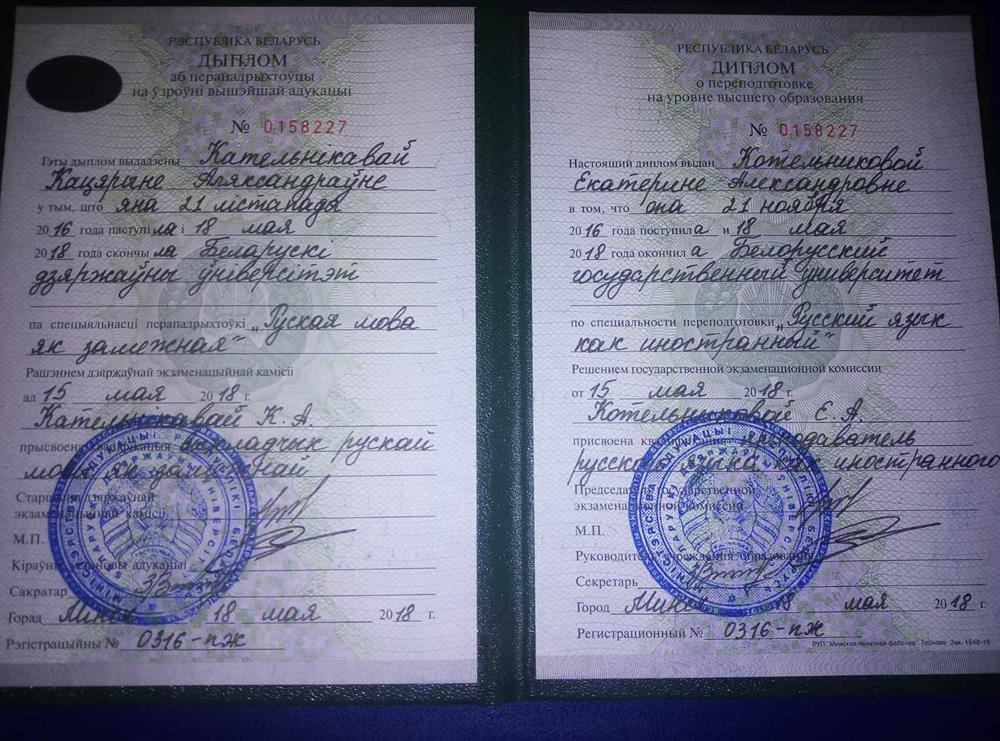 РЭСПУБЛІКА БЕЛАРУСЬ
ДЫПЛОМ
аб перападрыхтоўцы
на ўзроўні вышэйшай адукацыі
№ 0158227
Гэты дыплом выдадзены Кательнікавай
Кацярыне Аляксандраўне
у тым, што яна 21 лістапада
2016 года паступіла і 18 мая
2018 года скончыла Беларускі
дзяржаўны ўніверсітэт
па спецыяльнасці перападрыхтоўкі „Руская мова
як замежная“
Рашэннем дзяржаўнай экзаменацыйнай камісіі
ад 15 мая 2018 г.
Кательнікавай К. А.
прысвоена кваліфікацыя выкладчык рускай
мовы як замежнай
Старшыня дзяржаўнай
экзаменацыйнай камісіі
М.П.
Кіраўнік установы адукацыі
Сакратар
Горад Мінск 18 мая 2018 г.
Рэгістрацыйны № 0316-пж
РЕСПУБЛИКА БЕЛАРУСЬ
ДИПЛОМ
о переподготовке
на уровне высшего образования
№ 0158227
Настоящий диплом выдан Котельниковой
Екатерине Александровне
в том, что она 21 ноября
2016 года поступила и 18 мая
2018 года окончила Белорусский
государственный университет
по специальности переподготовки „Русский язык
как иностранный“
Решением государственной экзаменационной комиссии
от 15 мая 2018 г.
Котельниковой Е. А.
присвоена квалификация преподаватель
русского языка как иностранного
Председатель государственной
экзаменационной комиссии
М.П.
Руководитель учреждения образования
Секретарь
Город Минск 18 мая 2018 г.
Регистрационный № 0316-пж
РУП „Минская печатная фабрика“ Гознака. Зак. 1548-16.